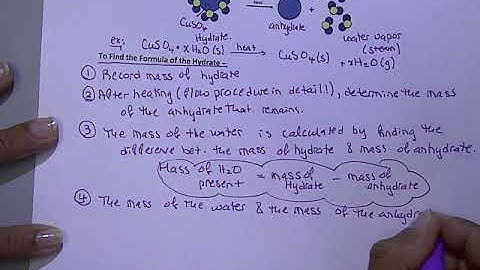 heat
CuSO₄
Hydrate.
anhydrate
water vapor
(steam)
ex:
1
CuSO₄ • xH₂O(s) heat CuSO₄(s) + xH₂O(g)
To Find the Formula of the Hydrate –
① Record mass of hydrate
② After heating (flow procedure in detail!), determine the mass
of the anhydrate that remains.
③ The mass of the water is calculated by finding the
difference bet. the mass of hydrate & mass of anhydrate.
Mass of H₂O present = mass of Hydrate – mass of anhydrate
④ The mass of the water & the mass of the anhydr